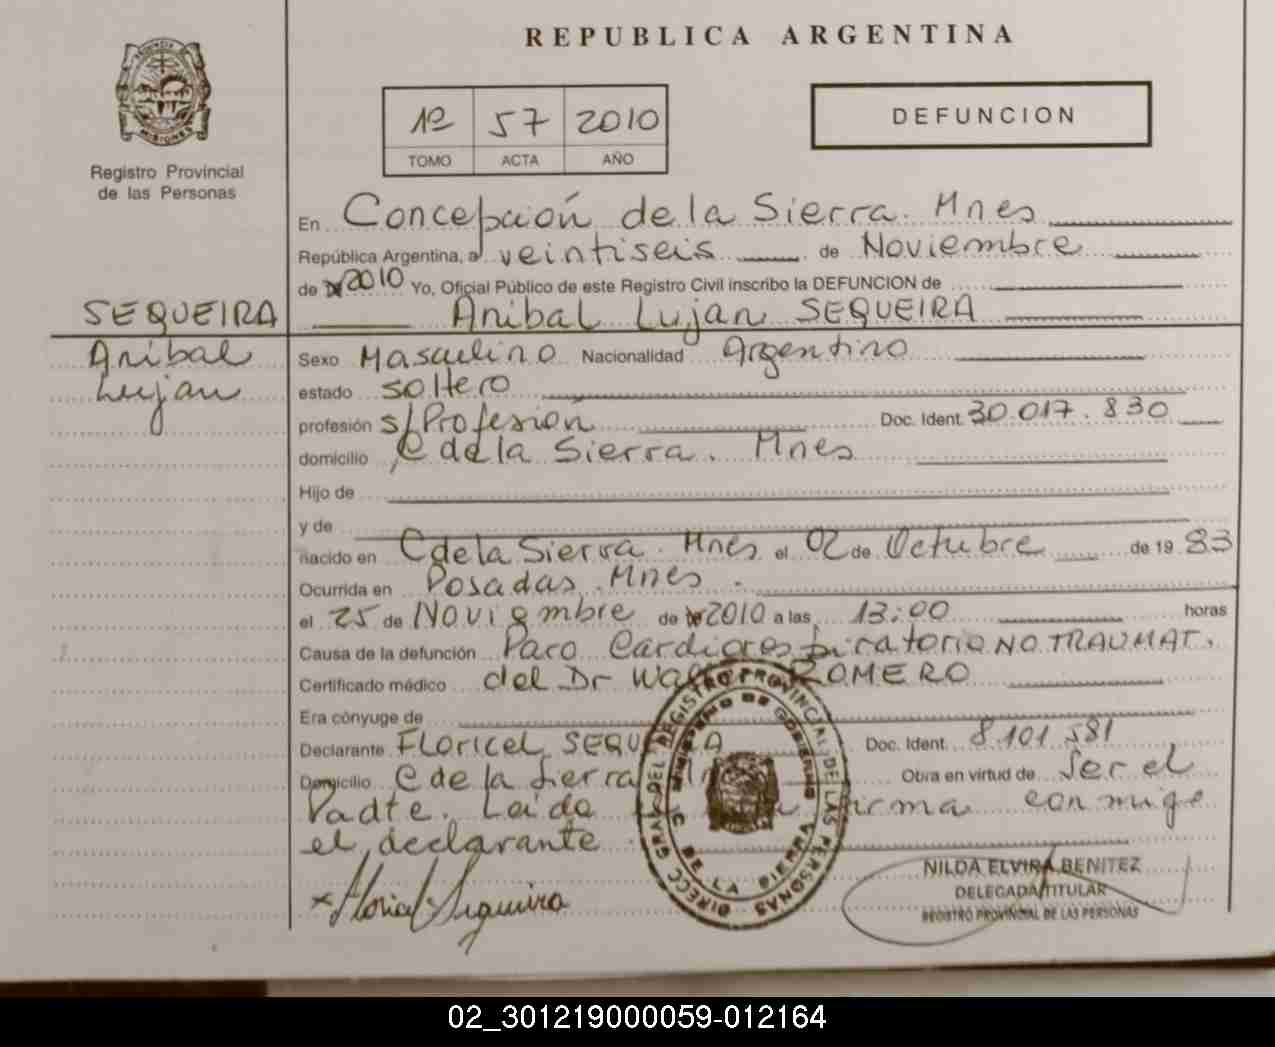 REPUBLICA ARGENTINA
1º 57 2010
TOMO ACTA AÑO
DEFUNCION
MISIONES
Registro Provincial
de las Personas
En Concepción de la Sierra. Mnes
República Argentina, a veintiseis de Noviembre
de 2010 Yo, Oficial Público de este Registro Civil inscribo la DEFUNCION de
SEQUEIRA Anibal Lujan SEQUEIRA
Anibal
Lujan
Sexo Masculino Nacionalidad Argentino
estado soltero
profesión s/Profesión Doc. Ident. 30.017.830
domicilio C de la Sierra. Mnes
Hijo de
y de
nacido en C de la Sierra. Mnes el 02 de Octubre de 19 83
Ocurrida en Posadas. Mnes.
el 25 de Noviembre de 2010 a las 13:00 horas
Causa de la defunción Paro Cardiorespiratorio NO TRAUMAT.
Certificado médico del Dr ROMERO
Era cónyuge de
Declarante Floricel Doc. Ident. 8.101.581
Domicilio C de la Sierra Obra en virtud de Ser el
Padte. Leida firma conmigo
el declarante.
DIRECC GRAL DEL REGISTRO PROVINCIAL DE LAS PERSONAS
MINISTERIO DE GOBIERNO
DE LA
NILDA ELVIRA BENITEZ
DELEGADA TITULAR
REGISTRO PROVINCIAL DE LAS PERSONAS
02_301219000059-012164